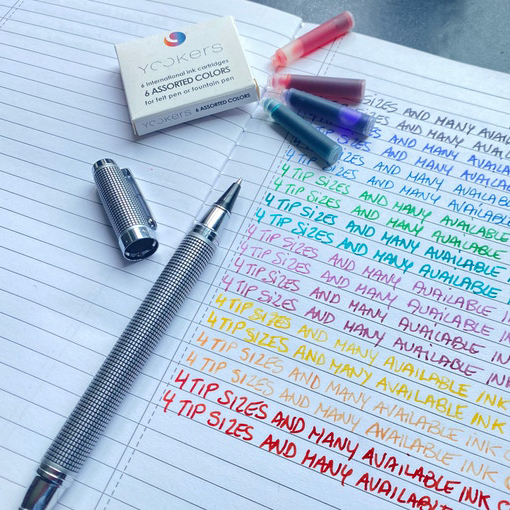 YOOKERS
6 International ink cartridges
6 ASSORTED COLORS
for felt pen or fountain pen
YOOKERS 6 ASSORTED COLORS
SIZES AND MANY
SIZES AND MANY
SIZES AND MANY
4 TIP SIZES AND MANY
4 TIP SIZES AND MANY AVAILABLE
4 TIP SIZES AND MANY AVAILABLE
4 TIP SIZES AND MANY AVAILABLE
4 TIP SIZES AND MANY AVAILABLE
4 TIP SIZES AND MANY AVAILABLE
4 TIP SIZES AND MANY AVAILABLE
4 TIP SIZES AND MANY AVAILABLE
4 TIP SIZES AND MANY AVAILABLE INK
4 TIP SIZES AND MANY AVAILABLE INK
4 TIP SIZES AND MANY AVAILABLE INK
4 TIP SIZES AND MANY AVAILABLE INK
4 TIP SIZES AND MANY AVAILABLE INK
4 TIP SIZES AND MANY AVAILABLE